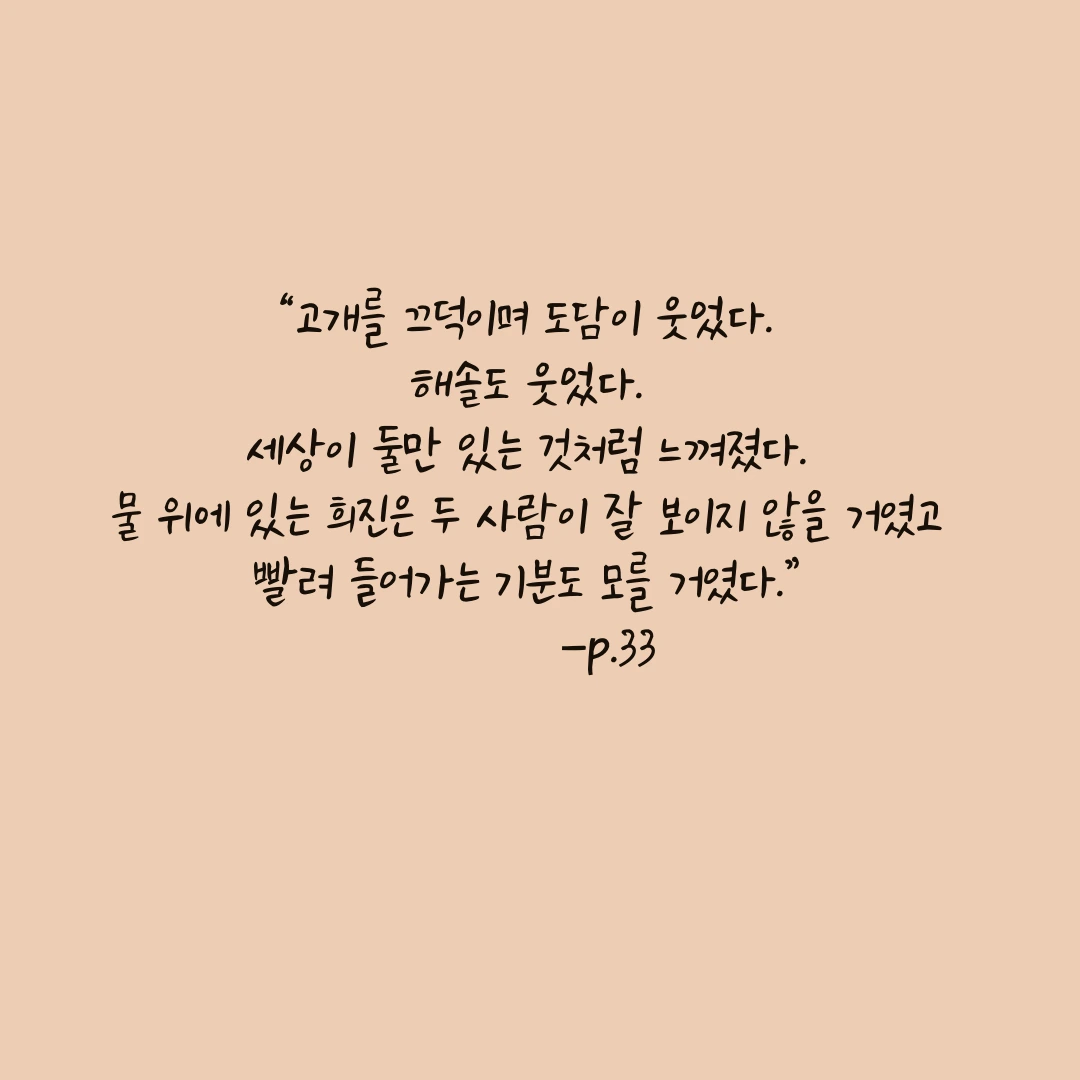 “고개를 끄덕이며 도담이 웃었다.
해솔도 웃었다.
세상이 둘만 있는 것처럼 느껴졌다.
물 위에 있는 희진은 두 사람이 잘 보이지 않을 거였고
빨려 들어가는 기분도 모를 거였다.”
-p.33